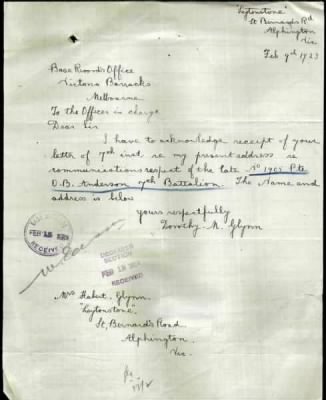 "Leytonstone"
St Bernards Rd
Alphington
Vic.
Feb 9th 1923
Base Records Office
Victoria Barracks
Melbourne
To the Officer in charge
Dear Sir
I have to acknowledge receipt of your
letter of 7th inst re my present address re
communications respect of the late No 1905 Pte
O.B. Anderson 7th Battalion. The Name and
address is below
Yours respectfully
Dorothy M. Glynn
FEB
RECEIVED
DECEASED
SECTION
FEB
RECEIVED
Mrs Hubert Glynn
"Leytonstone"
St. Bernard's Road
Alphington
Vic.